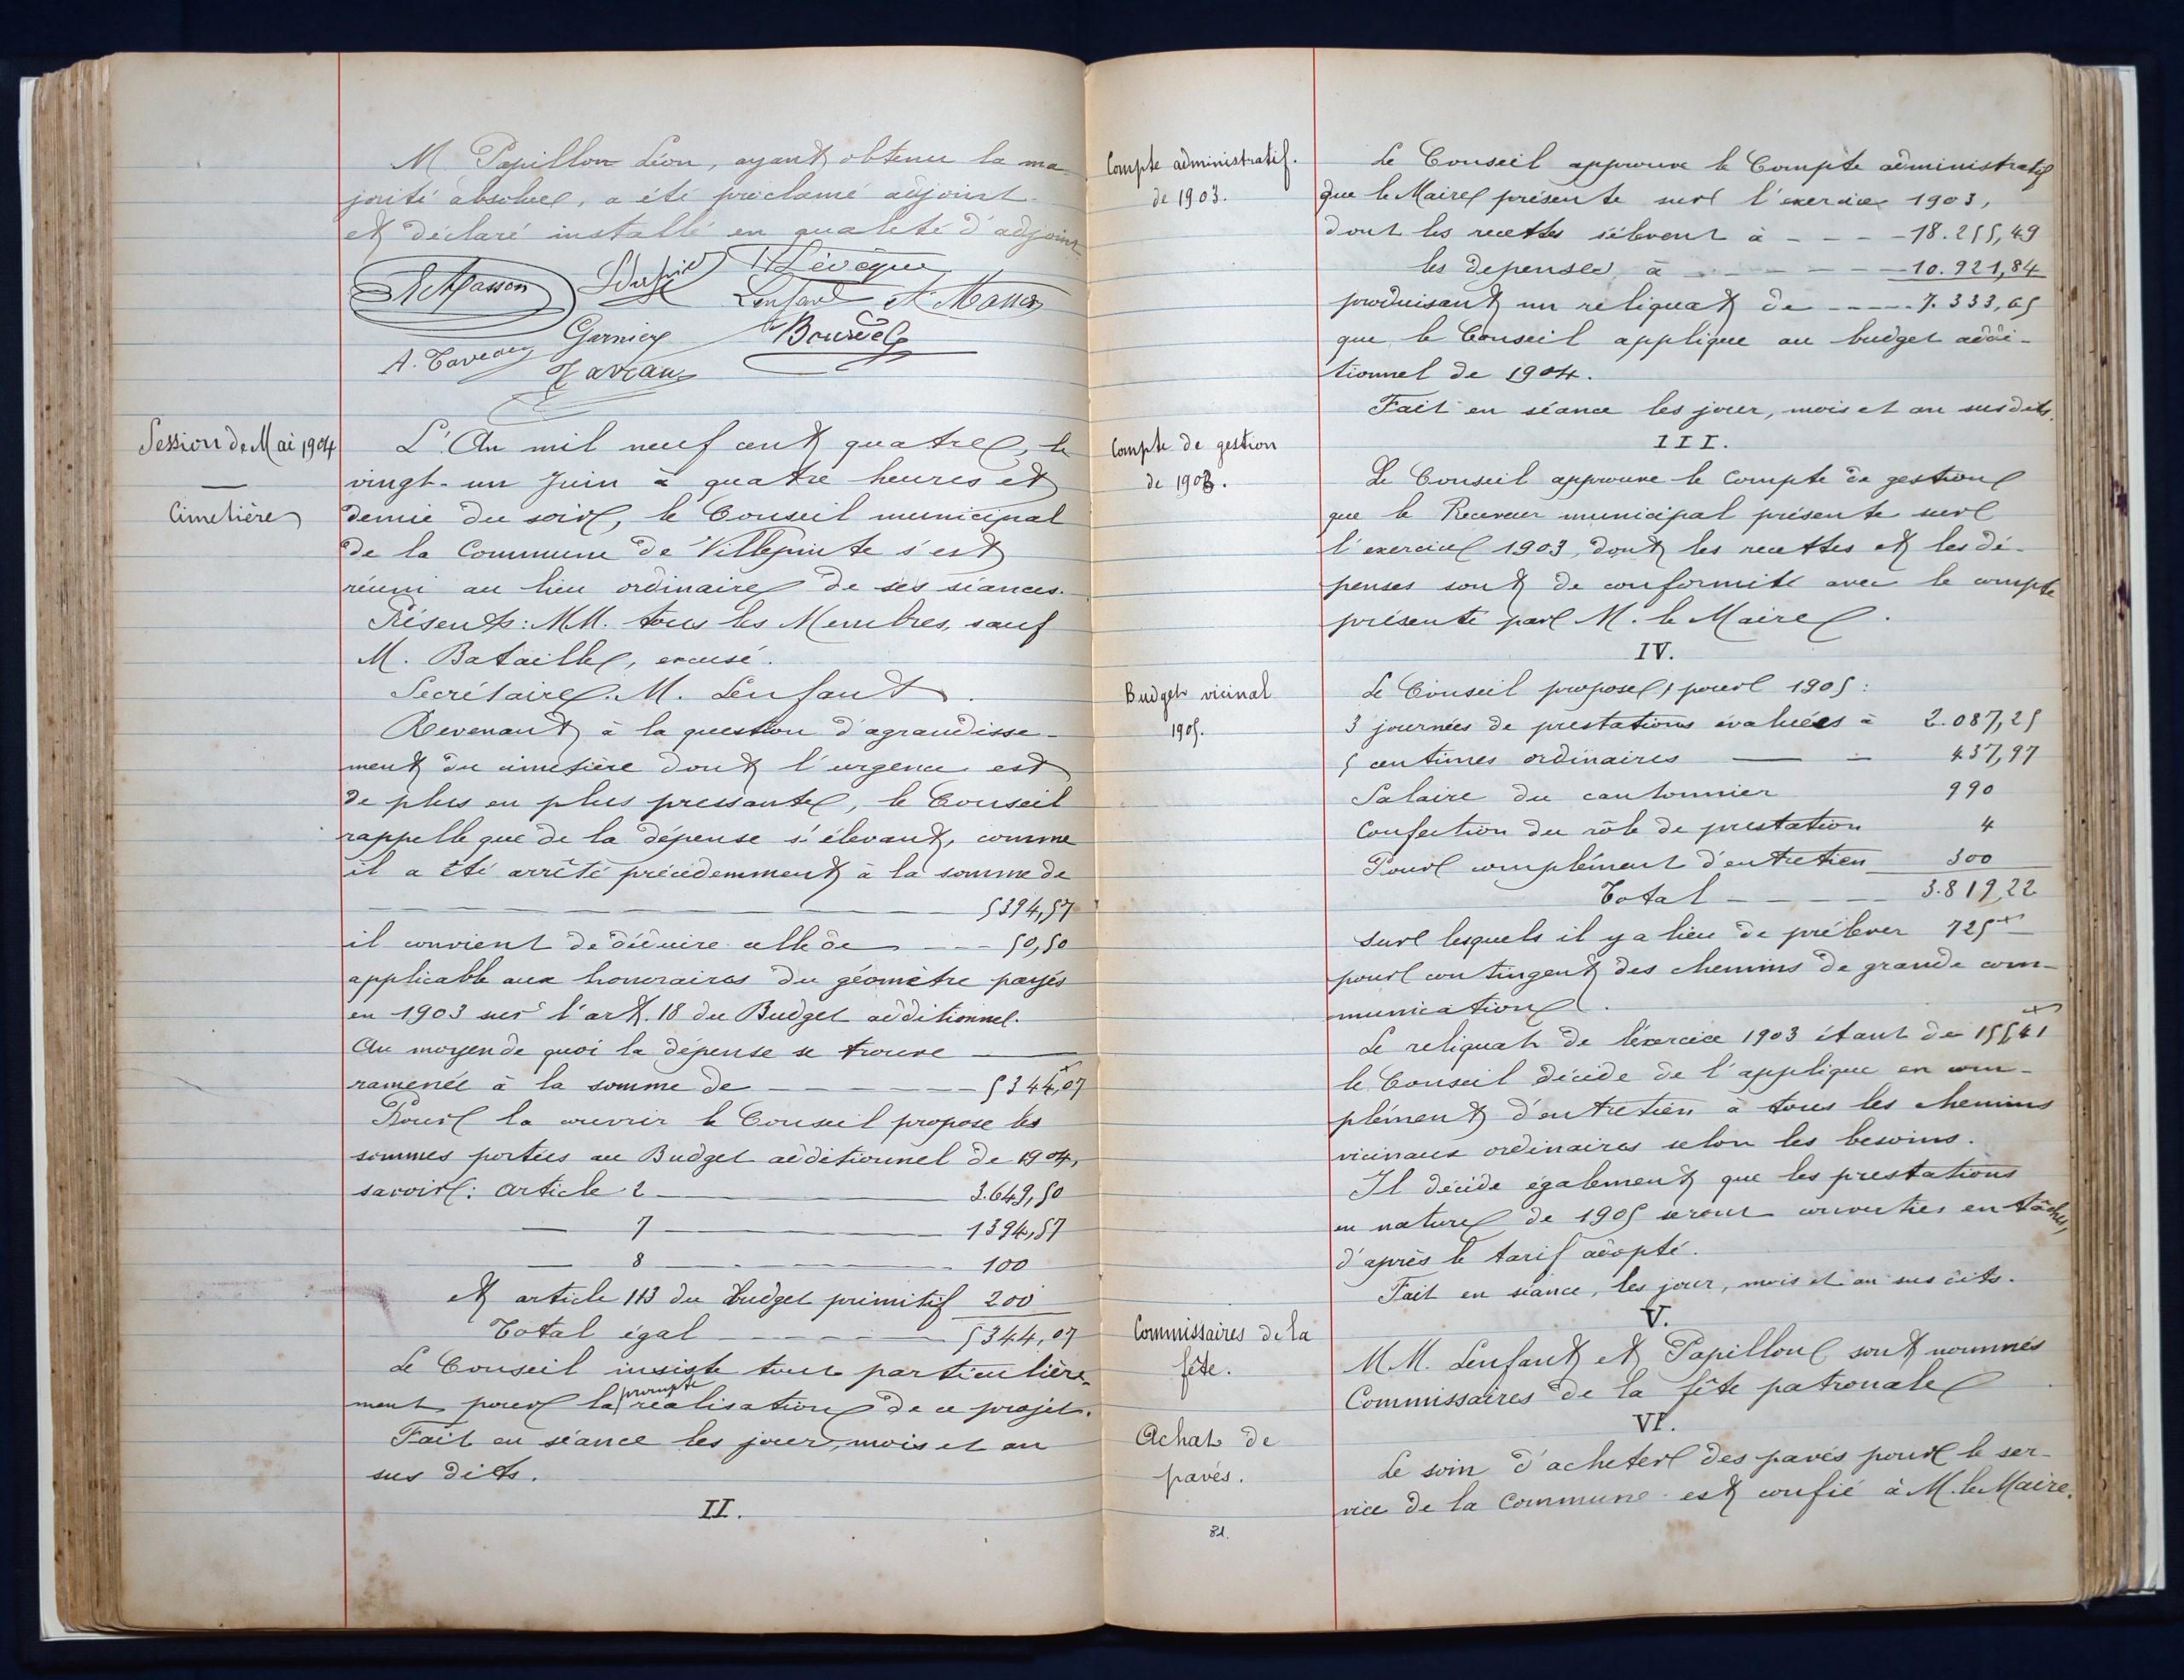 M. Papillon Léon, ayant obtenu la ma-
jorité absolue, a été proclamé adjoint
et déclaré installé en qualité d'adjoint
A Masson
H Lévêque
Lenfant
A Masson
Garnier
Bourdel
A. Taveau
Session de Mai 1904
Cimetière
L'An mil neuf cent quatre, le
vingt-un Juin à quatre heures et
demie du soir, le Conseil municipal
de la Commune de Villepinte s'est
réuni au lieu ordinaire de ses séances.
Présents: MM. tous les Membres, sauf
M. Bataille, excusé.
Secrétaire M. Lenfant.
Revenant à la question d'agrandisse-
ment du cimetière dont l'urgence est
de plus en plus pressante, le Conseil
rappelle que de la dépense s'élevant, comme
il a été arrêté précédemment à la somme de
5394,57
il convient de déduire celle de 50,50
applicable aux honoraires du géomètre payés
en 1903 sur l'art. 18 du Budget additionnel.
Au moyen de quoi la dépense se trouve
ramenée à la somme de 5344,07
Pour la couvrir le Conseil propose les
sommes portées au Budget additionnel de 1904,
savoir: article 2 3.649,50
— 7 1394,57
— 8 100
et article 113 du Budget primitif 200
Total égal 5344,07
Le Conseil insiste tout particulière-
ment pour la prompte réalisation de ce projet.
Fait en séance les jour, mois et an
sus dits.
II.
Compte administratif
de 1903.
Le Conseil approuve le Compte administratif
que le Maire présente sur l'exercice 1903,
dont les recettes s'élèvent à 18.255,49
les dépenses à 10.921,84
produisant un reliquat de 7.333,65
que le Conseil applique au budget addi-
tionnel de 1904.
Fait en séance les jour, mois et an susdits.
III.
Compte de gestion
de 1903.
Le Conseil approuve le Compte de gestion
que le Receveur municipal présente sur
l'exercice 1903, dont les recettes et les dé-
penses sont de conformité avec le compte
présenté par M. le Maire.
IV.
Budget vicinal
1905.
Le Conseil propose, pour 1905:
3 journées de prestations évaluées à 2.087,25
5 centimes ordinaires 437,97
Salaire du cantonnier 990
Confection du rôle de prestation 4
Pour complément d'entretien 300
Total 3.819,22
sur lesquels il y a lieu de prélever 725
pour contingent des chemins de grande com-
munication.
Le reliquat de l'exercice 1903 étant de 155,41
le Conseil décide de l'applique en com-
plément d'entretien à tous les chemins
vicinaux ordinaires selon les besoins.
Il décide également que les prestations
en nature de 1905 seront converties en tâches,
d'après le tarif adopté.
Fait en séance, les jour, mois et an sus dits.
V.
Commissaires de la
fête.
MM. Lenfant et Papillon sont nommés
Commissaires de la fête patronale
VI.
Achat de
pavés.
Le soin d'acheter des pavés pour le ser-
vice de la Commune est confié à M. le Maire.
81.